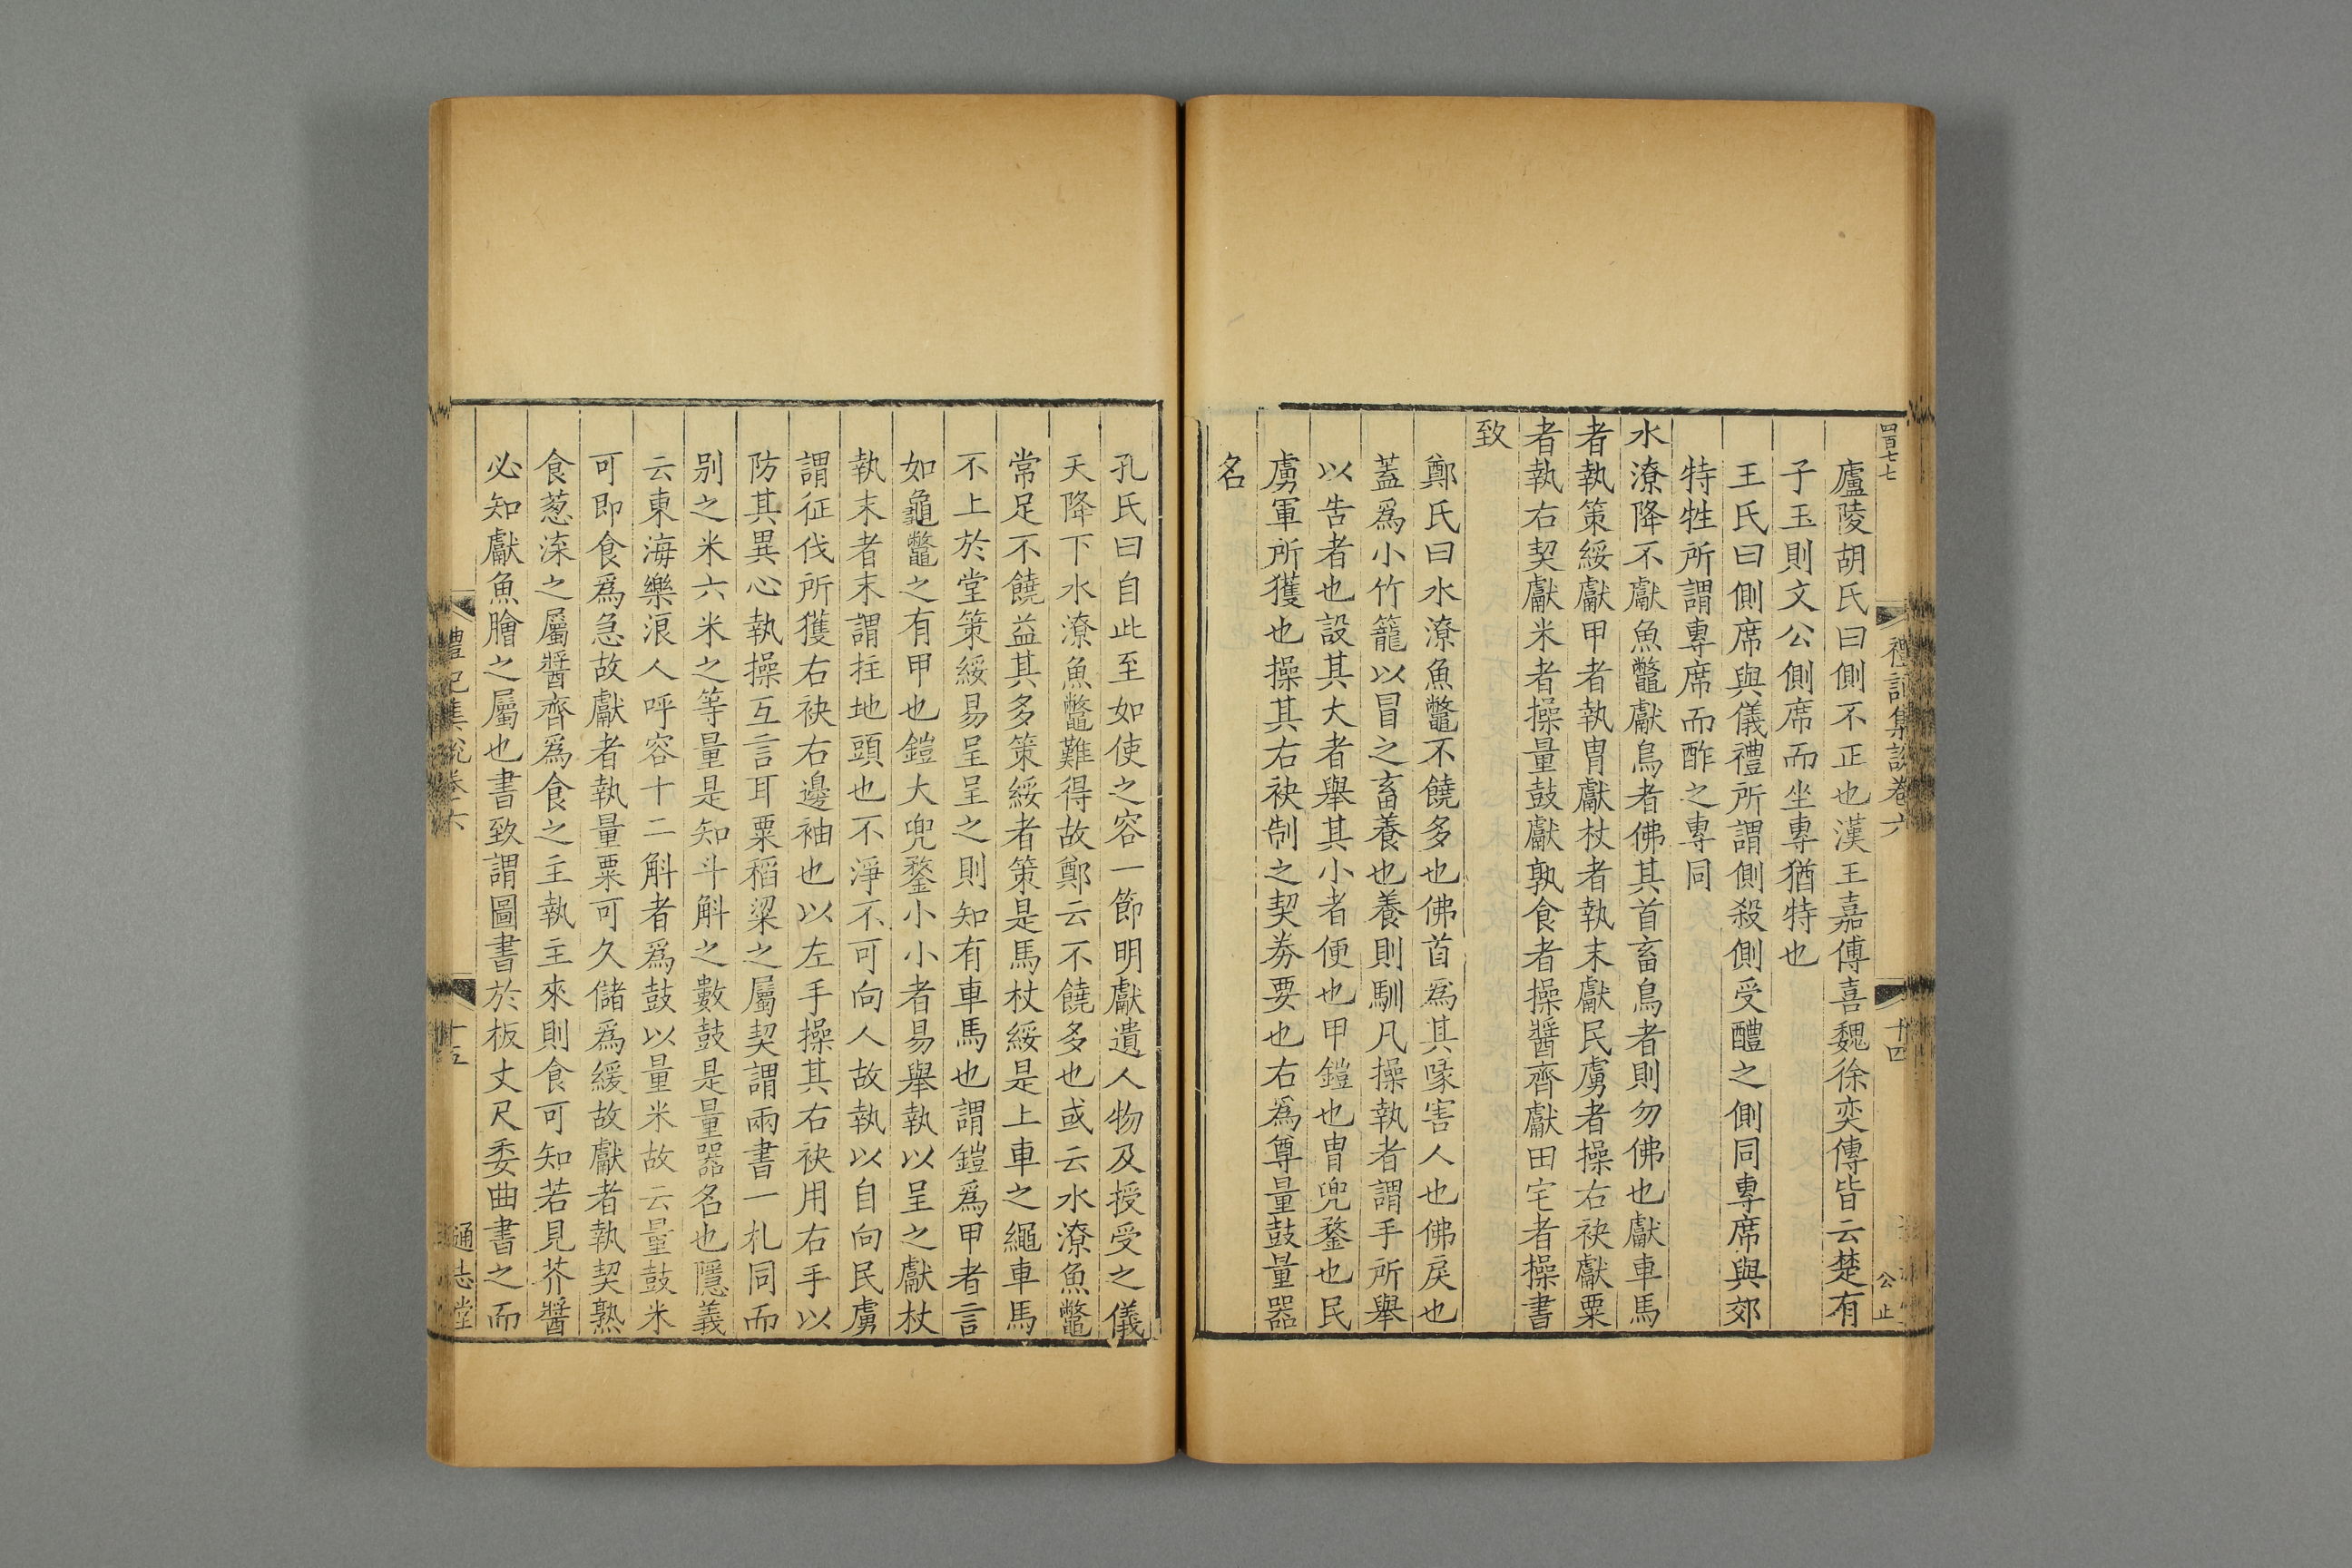 四百七七
禮記集說卷六
十四
公止
廬陵胡氏曰側不正也漢王嘉傅喜魏徐奕傳皆云楚有
子玉則文公側席而坐專猶特也
王氏曰側席與儀禮所謂側殺側受醴之側同專席與郊
特牲所謂專席而酢之專同
水潦降不獻魚鼈獻鳥者佛其首畜鳥者則勿佛也獻車馬
者執策綏獻甲者執胄獻杖者執末獻民虜者操右袂獻粟
者執右契獻米者操量鼓獻孰食者操醬齊獻田宅者操書
致
鄭氏曰水潦魚鼈不饒多也佛首爲其喙害人也佛戾也
蓋爲小竹籠以冒之畜養也養則馴凡操執者謂手所舉
以告者也設其大者舉其小者便也甲鎧也胄兜鍪也民
虜軍所獲也操其右袂制之契券要也右爲尊量鼓量器
名
孔氏曰自此至如使之容一節明獻遺人物及授受之儀
天降下水潦魚鼈難得故鄭云不饒多也或云水潦魚鼈
常足不饒益其多策綏者策是馬杖綏是上車之繩車馬
不上於堂策綏易呈呈之則知有車馬也謂鎧爲甲者言
如龜鼈之有甲也鎧大兜鍪小小者易舉執以呈之獻杖
執末者末謂拄地頭也不淨不可向人故執以自向民虜
謂征伐所獲右袂右邊袖也以左手操其右袂用右手以
防其異心執操互言耳粟稻粱之屬契謂兩書一札同而
别之米六米之等量是知斗斛之數鼓是量器名也隱義
云東海樂浪人呼容十二斛者爲鼓以量米故云量鼓米
可即食爲急故獻者執量粟可久儲爲緩故獻者執契熟
食葱㴃之屬醬齊爲食之主執主來則食可知若見芥醬
必知獻魚膾之屬也書致謂圖書於板丈尺委曲書之而
禮記集說卷六
十五
通志堂